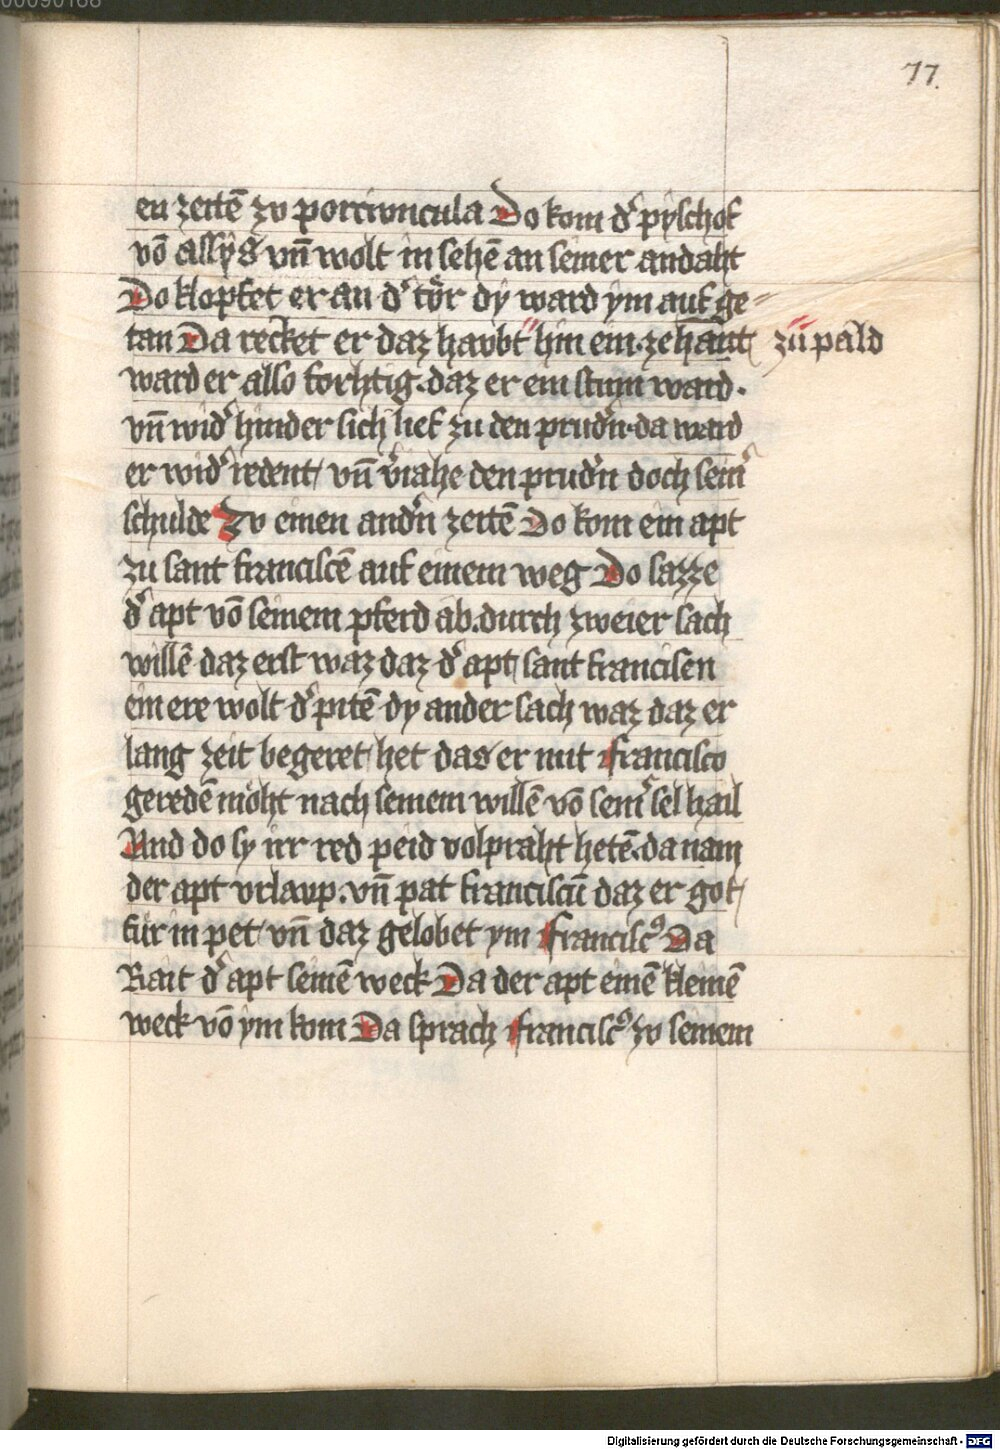 77.
en zeitē zv porcivncula Do kom d' pyschof
vō assys vn̄ wolt in sehē an seiner andaht
Do klopfet er an d' tör dy ward ym auf ge=
tan Da recket er daz havbt" hin ein·zehant zü pald
ward er also forhtig·daz er ein stum ward·
vn̄ wid' hinder sich lief zu den prud'n·da ward
er wid' redent vn̄ v'iahe den prud'n doch sein'
schulde Zv einen and'n zeitē Do kom ein apt
zu sant franciscē auf einem weg Do sazze
d' apt vō seinem pferd ab·durch zweier sach
willē daz erst waz daz d' apt sant francisen
ein ere wolt d'pitē dy ander sach waz daz er
lang zeit begeret het das er mit francisco
geredē möht nach seinem willē vō sein' sel hail
Vnd do sy irr red peid volpraht hetē·da nam
der apt vrlavp·vn̄ pat franciscū daz er got
für in pet vn̄ daz gelobet ym francisc⁹ Da
Rait d' apt seinē weck Da der apt einē kleinē
weck vō ym kom Da sprach francisc⁹ zv seinem
Digitalisierung gefördert durch die Deutsche Forschungsgemeinschaft - DFG